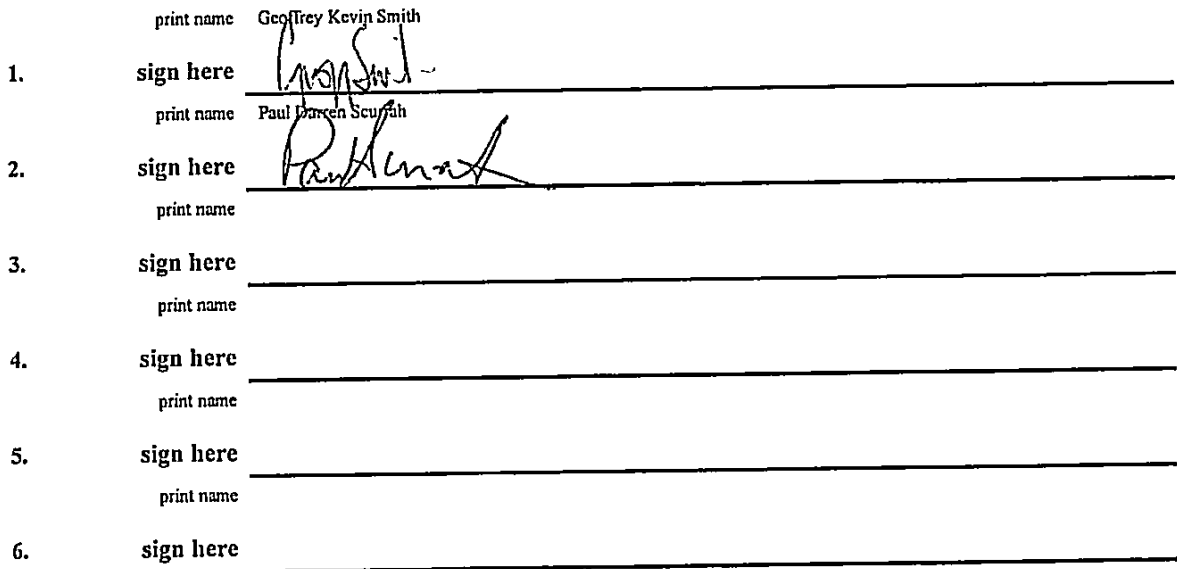 print name Geoffrey Kevin Smith
1. sign here
print name Paul Darren Scurrah
2. sign here Paul Scurrah
print name
3. sign here
print name
4. sign here
print name
5. sign here
print name
6. sign here